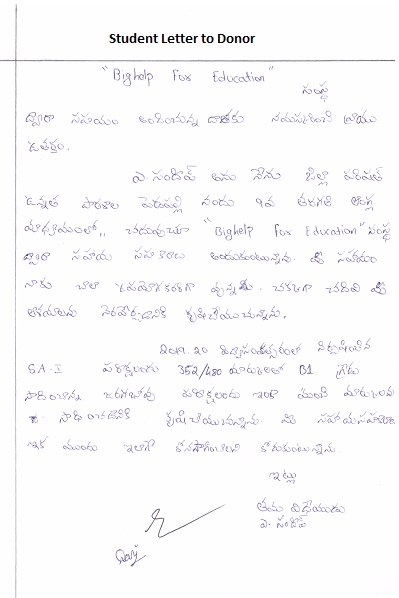 Student Letter to Donor
"Bighelp For Education"
సంస్థ
ద్వారా సహాయం అందించుచున్న దాతకు నమస్కరించి వ్రాయు
ఉత్తరం.
ఎ. సందీప్ అను నేను జిల్లా పరిషత్
ఉన్నత పాఠశాల నందు 9వ తరగతి ఆంగ్ల
మాధ్యమంలో చదువుచూ "Bighelp For Education" సంస్థ
ద్వారా సహాయ సహకారాలు అందుకుంటున్నాను. మీ సహాయం
నాకు చాలా ఉపయోగకరంగా వున్నది. చక్కగా చదివి మీ
ఆశయాలను నెరవేర్చడానికి కృషిచేయుచున్నాను.
2019-20 విద్యాసంవత్సరంలో నిర్వహించిన
SA-I పరీక్షలందు 352/480 మార్కులతో B1 గ్రేడు
సాధించాను. జరగబోవు పరీక్షలందు ఇంకా మంచి మార్కులు
సాధించడానికి కృషిచేయుచున్నాను. మీ సహాయసహకారాలు
ఇక ముందు ఇలాగే కొనసాగించాలని కోరుకుంటున్నాను.
ఇట్లు
తమ విధేయుడు
ఎ. సందీప్